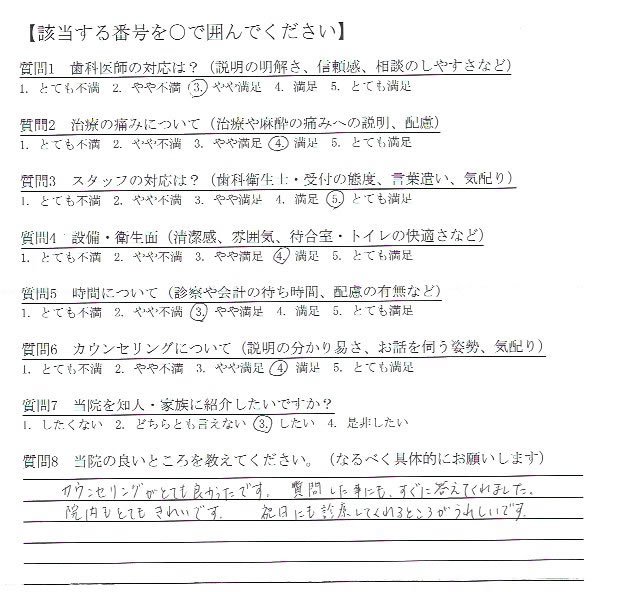 【該当する番号を○で囲んでください】
質問1 歯科医師の対応は？（説明の明解さ、信頼感、相談のしやすさなど）
1. とても不満 2. やや不満 3. やや満足 4. 満足 5. とても満足
質問2 治療の痛みについて（治療や麻酔の痛みへの説明、配慮）
1. とても不満 2. やや不満 3. やや満足 4. 満足 5. とても満足
質問3 スタッフの対応は？（歯科衛生士・受付の態度、言葉遣い、気配り）
1. とても不満 2. やや不満 3. やや満足 4. 満足 5. とても満足
質問4 設備・衛生面（清潔感、雰囲気、待合室・トイレの快適さなど）
1. とても不満 2. やや不満 3. やや満足 4. 満足 5. とても満足
質問5 時間について（診察や会計の待ち時間、配慮の有無など）
1. とても不満 2. やや不満 3. やや満足 4. 満足 5. とても満足
質問6 カウンセリングについて（説明の分かり易さ、お話を伺う姿勢、気配り）
1. とても不満 2. やや不満 3. やや満足 4 満足 5. とても満足
質問7 当院を知人・家族に紹介したいですか？
1. したくない 2. どちらとも言えない 3. したい 4. 是非したい
質問8 当院の良いところを教えてください。（なるべく具体的にお願いします）
カウンセリングがとても良かったです。 質問した事にも、すぐに答えてくれました。
院内もとてもきれいです。 祝日にも診療してくれるところがうれしいです。